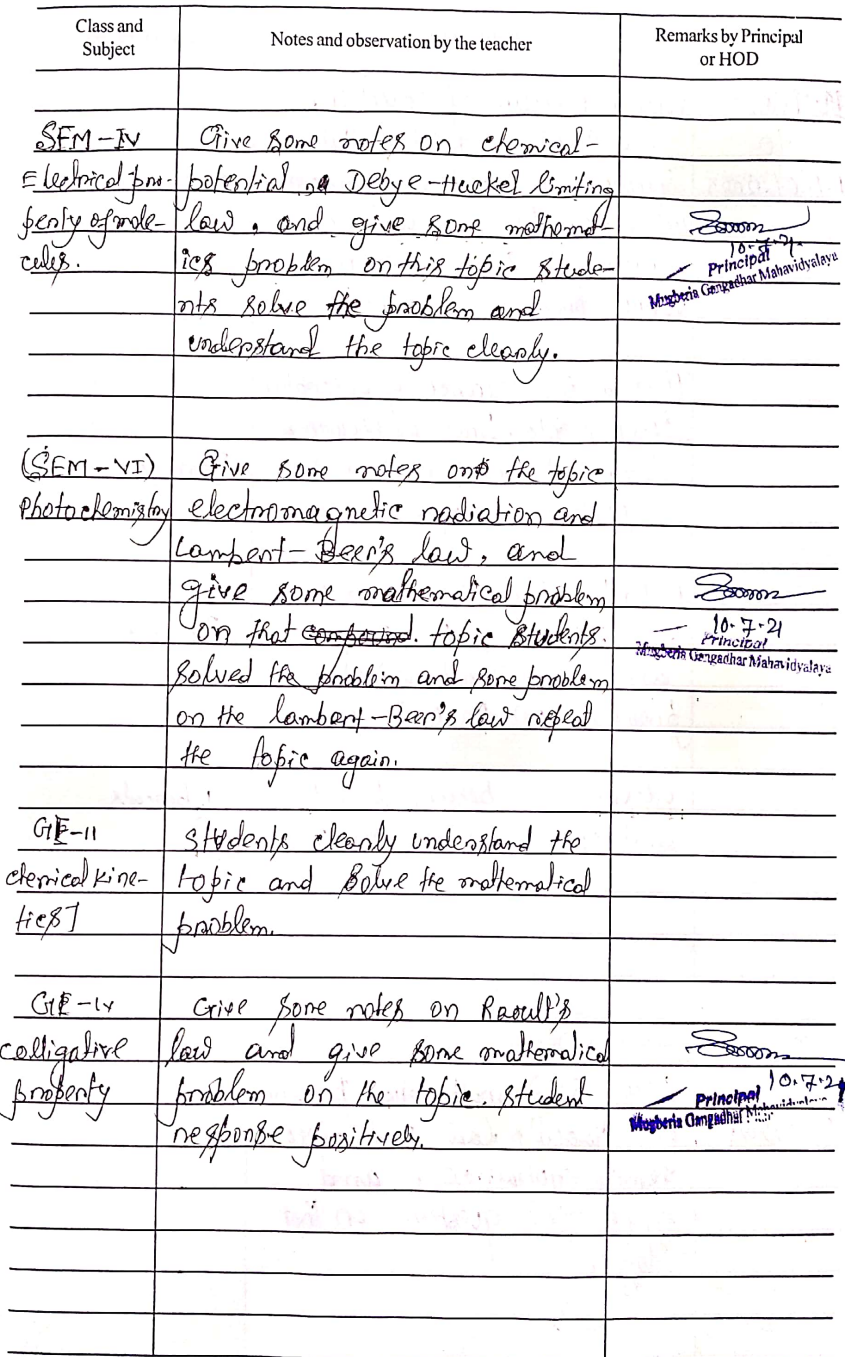 Class and Subject
Notes and observation by the teacher
Remarks by Principal or HOD
SEM-IV
Electrical pro-
perty of mole-
cules.
Give some notes on chemical-
potential, Debye-Huckel limiting
law, and give some mathemat-
ics problem on this topic stude-
nts solve the problem and
understand the topic clearly.
10-7-21
Principal
Mugberia Gangadhar Mahavidyalaya
(SEM-VI)
Photochemistry
Give some notes on the topic
electromagnetic radiation and
Lambert-Beer's law, and
give some mathematical problem
on that topic students.
solved the problem and some problem
on the lambert-Beer's law repeat
the topic again.
10-7-21
Principal
Mugberia Gangadhar Mahavidyalaya
GE-II
chemical kine-
tics]
students clearly understand the
topic and solve the mathematical
problem.
GE-IV
colligative
property
Give some notes on Raoult's
law and give some mathematical
problem on the topic student
response positively.
10.7.21
Principal
Mugberia Gangadhar Mahavidyalaya